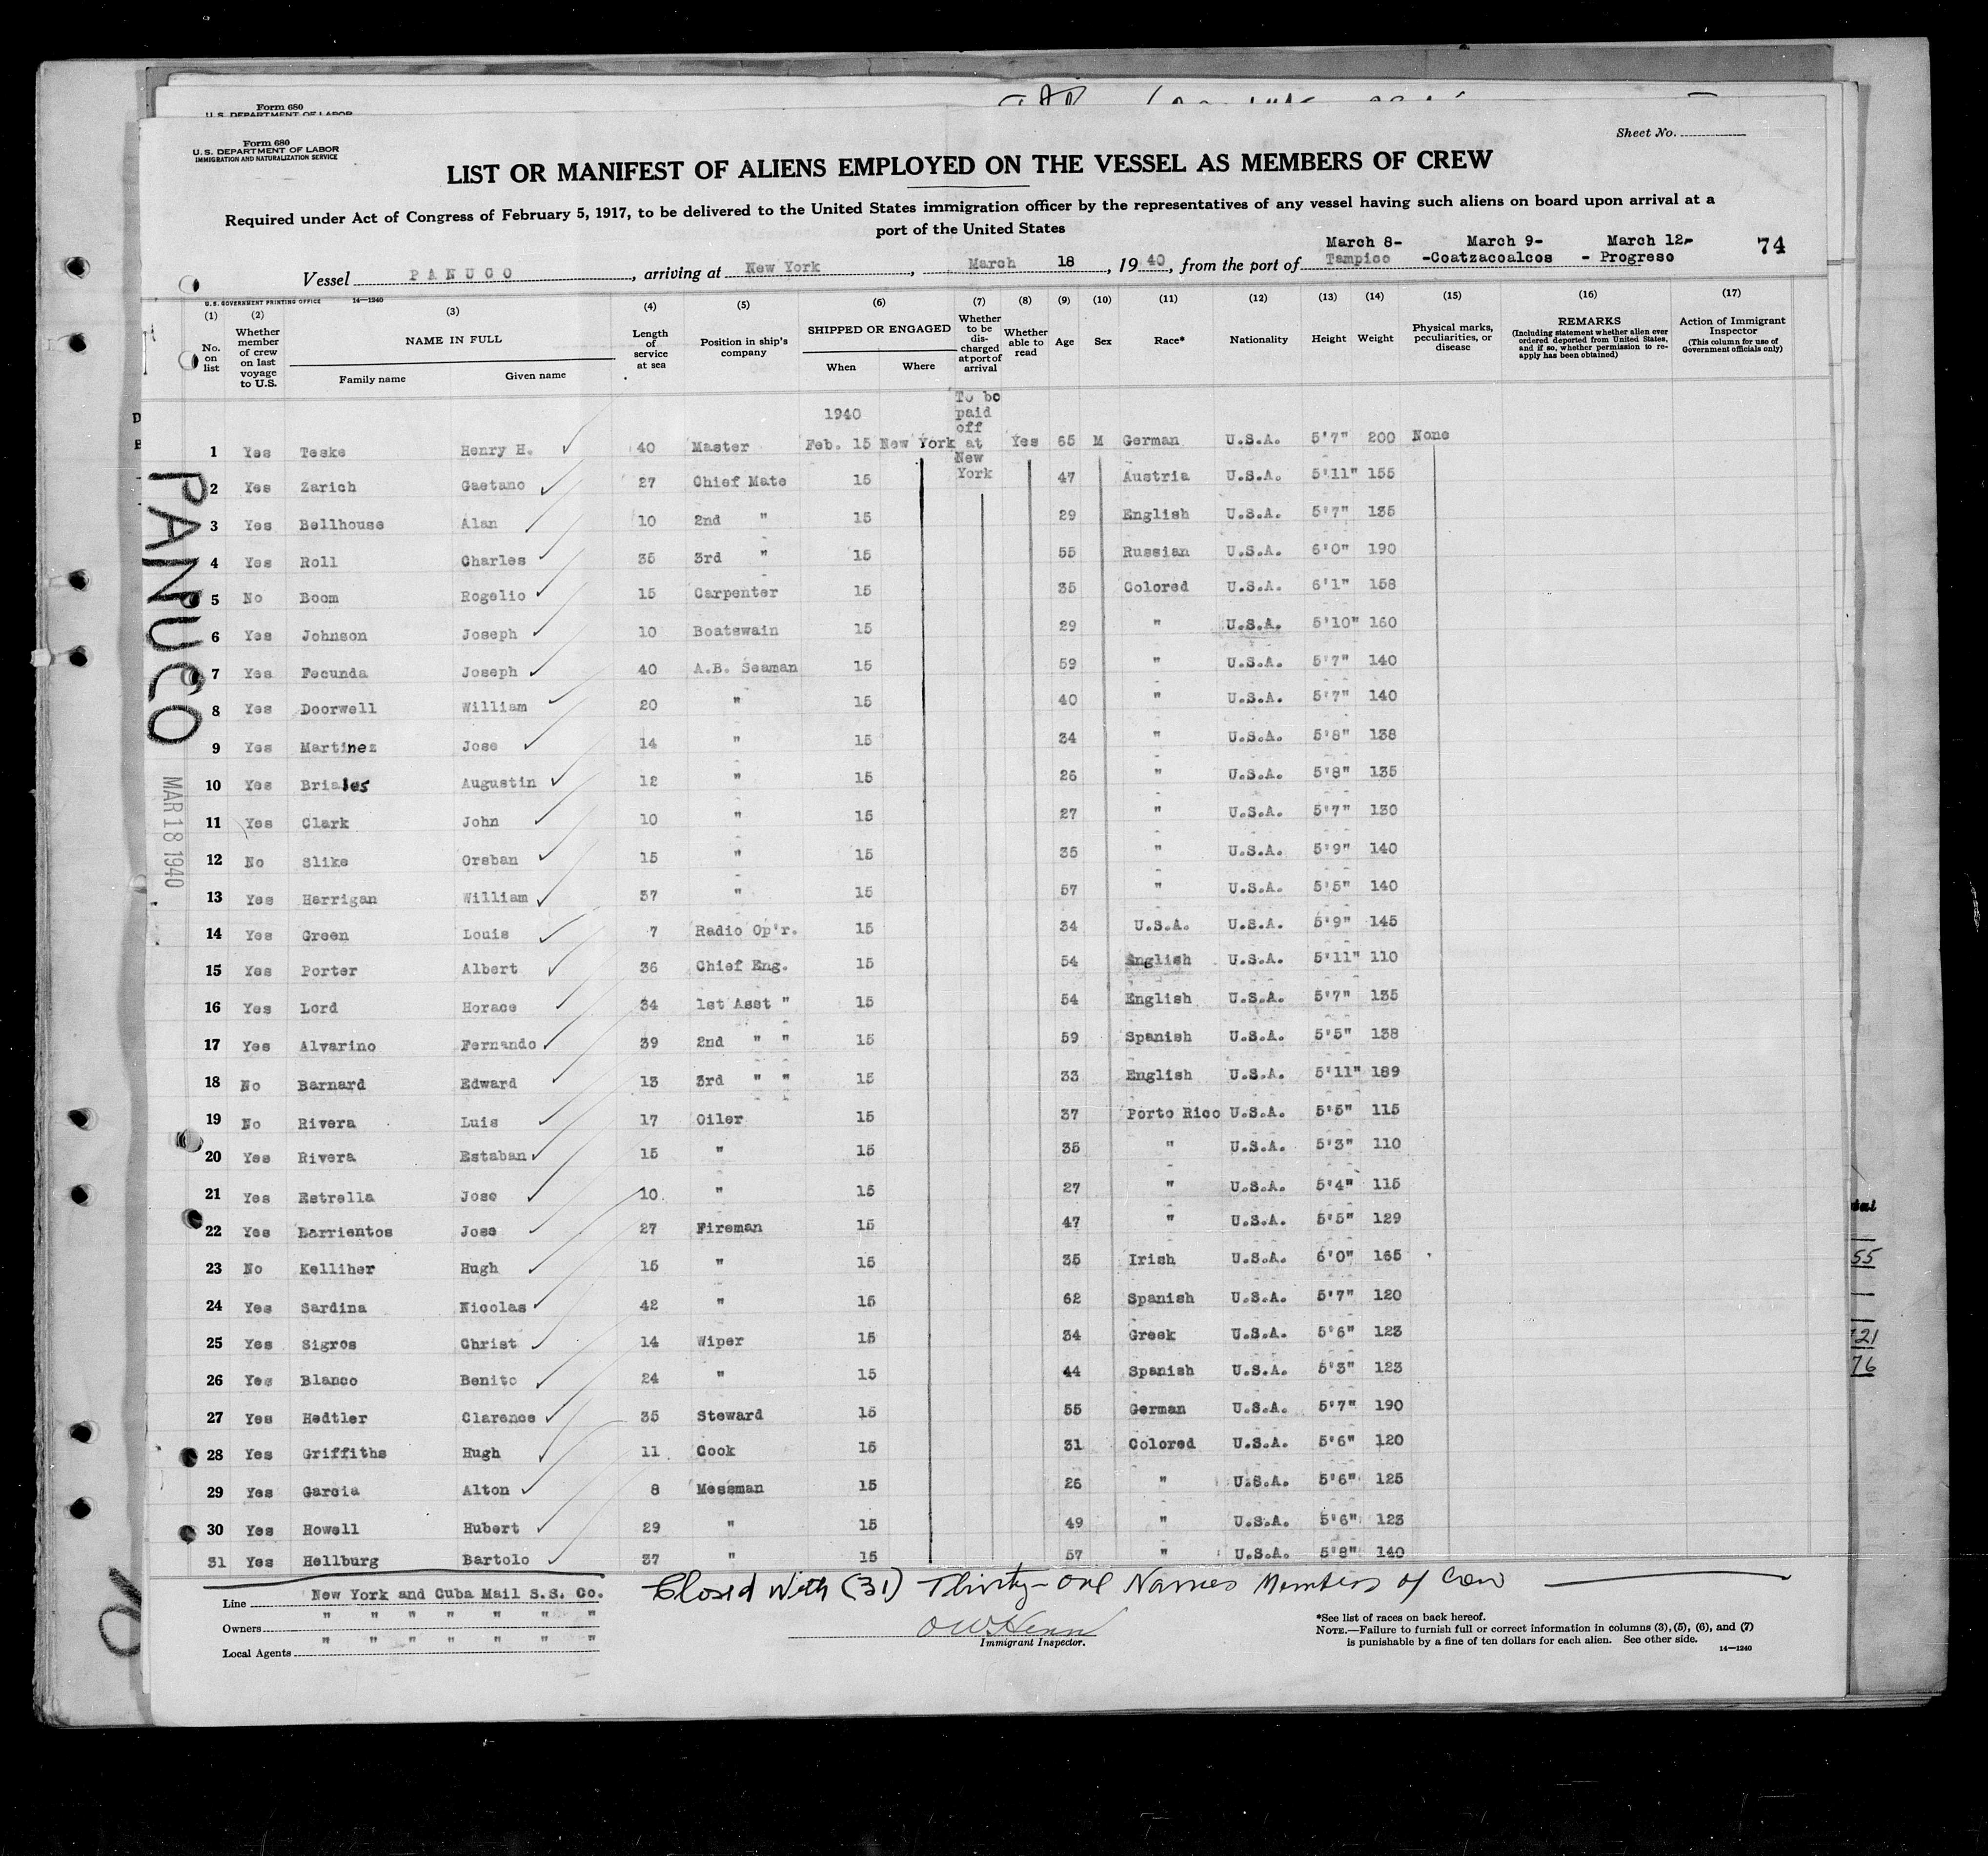 Form 680
U. S. DEPARTMENT OF LABOR
Form 680
U. S. DEPARTMENT OF LABOR
IMMIGRATION AND NATURALIZATION SERVICE
Sheet No.
LIST OR MANIFEST OF ALIENS EMPLOYED ON THE VESSEL AS MEMBERS OF CREW
Required under Act of Congress of February 5, 1917, to be delivered to the United States immigration officer by the representatives of any vessel having such aliens on board upon arrival at a
port of the United States
March 8- March 9- March 12- 74
Vessel PANUCO, arriving at New York, March 18, 1940, from the port of Tampico -Coatzacoalcos - Progreso
U. S. GOVERNMENT PRINTING OFFICE 14—1240
(1) (2) (3) (4) (5) (6) (7) (8) (9) (10) (11) (12) (13) (14) (15) (16) (17)
No. on list
Whether member of crew on last voyage to U.S.
NAME IN FULL
Family name Given name
Length of service at sea
Position in ship's company
SHIPPED OR ENGAGED
When Where
Whether to be discharged at port of arrival
Whether able to read
Age
Sex
Race*
Nationality
Height
Weight
Physical marks, peculiarities, or disease
REMARKS
(Including statement whether alien ever ordered deported from United States, and if so, whether permission to reapply has been obtained)
Action of Immigrant Inspector
(This column for use of Government officials only)
1940 To be paid off at New York
1 Yes Teske Henry H. 40 Master Feb. 15 New York Yes 65 M German U.S.A. 5'7" 200 None
2 Yes Zarich Gaetano 27 Chief Mate 15 47 Austria U.S.A. 5'11" 155
3 Yes Bellhouse Alan 10 2nd " 15 29 English U.S.A. 5'7" 135
4 Yes Roll Charles 35 3rd " 15 55 Russian U.S.A. 6'0" 190
5 No Boom Rogelio 15 Carpenter 15 35 Colored U.S.A. 6'1" 158
6 Yes Johnson Joseph 10 Boatswain 15 29 " U.S.A. 5'10" 160
7 Yes Fecunda Joseph 40 A.B. Seaman 15 59 " U.S.A. 5'7" 140
8 Yes Doorwell William 20 " 15 40 " U.S.A. 5'7" 140
9 Yes Martinez Jose 14 " 15 34 " U.S.A. 5'8" 138
10 Yes Briales Augustin 12 " 15 26 " U.S.A. 5'8" 135
11 Yes Clark John 10 " 15 27 " U.S.A. 5'7" 130
12 No Slike Orsban 15 " 15 35 " U.S.A. 5'9" 140
13 Yes Harrigan William 37 " 15 57 " U.S.A. 5'5" 140
14 Yes Green Louis 7 Radio Op'r. 15 34 U.S.A. U.S.A. 5'9" 145
15 Yes Porter Albert 36 Chief Eng. 15 54 English U.S.A. 5'11" 110
16 Yes Lord Horace 34 1st Asst " 15 54 English U.S.A. 5'7" 135
17 Yes Alvarino Fernando 39 2nd " " 15 59 Spanish U.S.A. 5'5" 138
18 No Barnard Edward 13 3rd " " 15 33 English U.S.A. 5'11" 189
19 No Rivera Luis 17 Oiler 15 37 Porto Rico U.S.A. 5'5" 115
20 Yes Rivera Estaban 15 " 15 35 " U.S.A. 5'3" 110
21 Yes Estrella Jose 10 " 15 27 " U.S.A. 5'4" 115
22 Yes Barrientos Jose 27 Fireman 15 47 " U.S.A. 5'5" 129
23 No Kelliher Hugh 15 " 15 35 Irish U.S.A. 6'0" 165
24 Yes Sardina Nicolas 42 " 15 62 Spanish U.S.A. 5'7" 120
25 Yes Sigros Christ 14 Wiper 15 34 Greek U.S.A. 5'6" 123
26 Yes Blanco Benito 24 " 15 44 Spanish U.S.A. 5'3" 123
27 Yes Hedtler Clarence 35 Steward 15 55 German U.S.A. 5'7" 190
28 Yes Griffiths Hugh 11 Cook 15 31 Colored U.S.A. 5'6" 120
29 Yes Garcia Alton 8 Messman 15 26 " U.S.A. 5'6" 125
30 Yes Howell Hubert 29 " 15 49 " U.S.A. 5'6" 123
31 Yes Hellburg Bartolo 37 " 15 57 " U.S.A. 5'8" 140
PANUCO
MAR 18 1940
55
21
76
Line New York and Cuba Mail S.S. Co.
Owners " " " " " " "
Local Agents " " " " " " "
Closed With (31) Thirty-one Names Members of Crew
Immigrant Inspector.
*See list of races on back hereof.
NOTE.—Failure to furnish full or correct information in columns (3), (5), (6), and (7)
is punishable by a fine of ten dollars for each alien. See other side.
14—1240